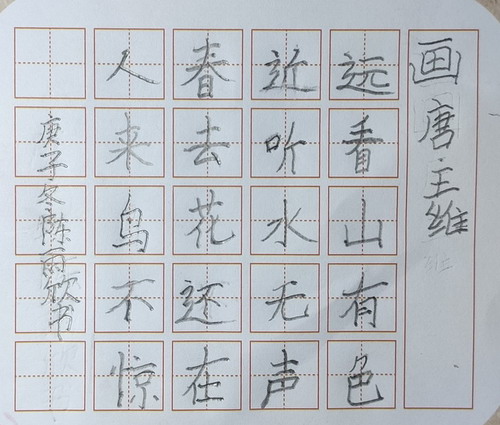 画 唐·王维
远看山有色
近听水无声
春去花还在
人来鸟不惊
庚子冬陈丽欣书